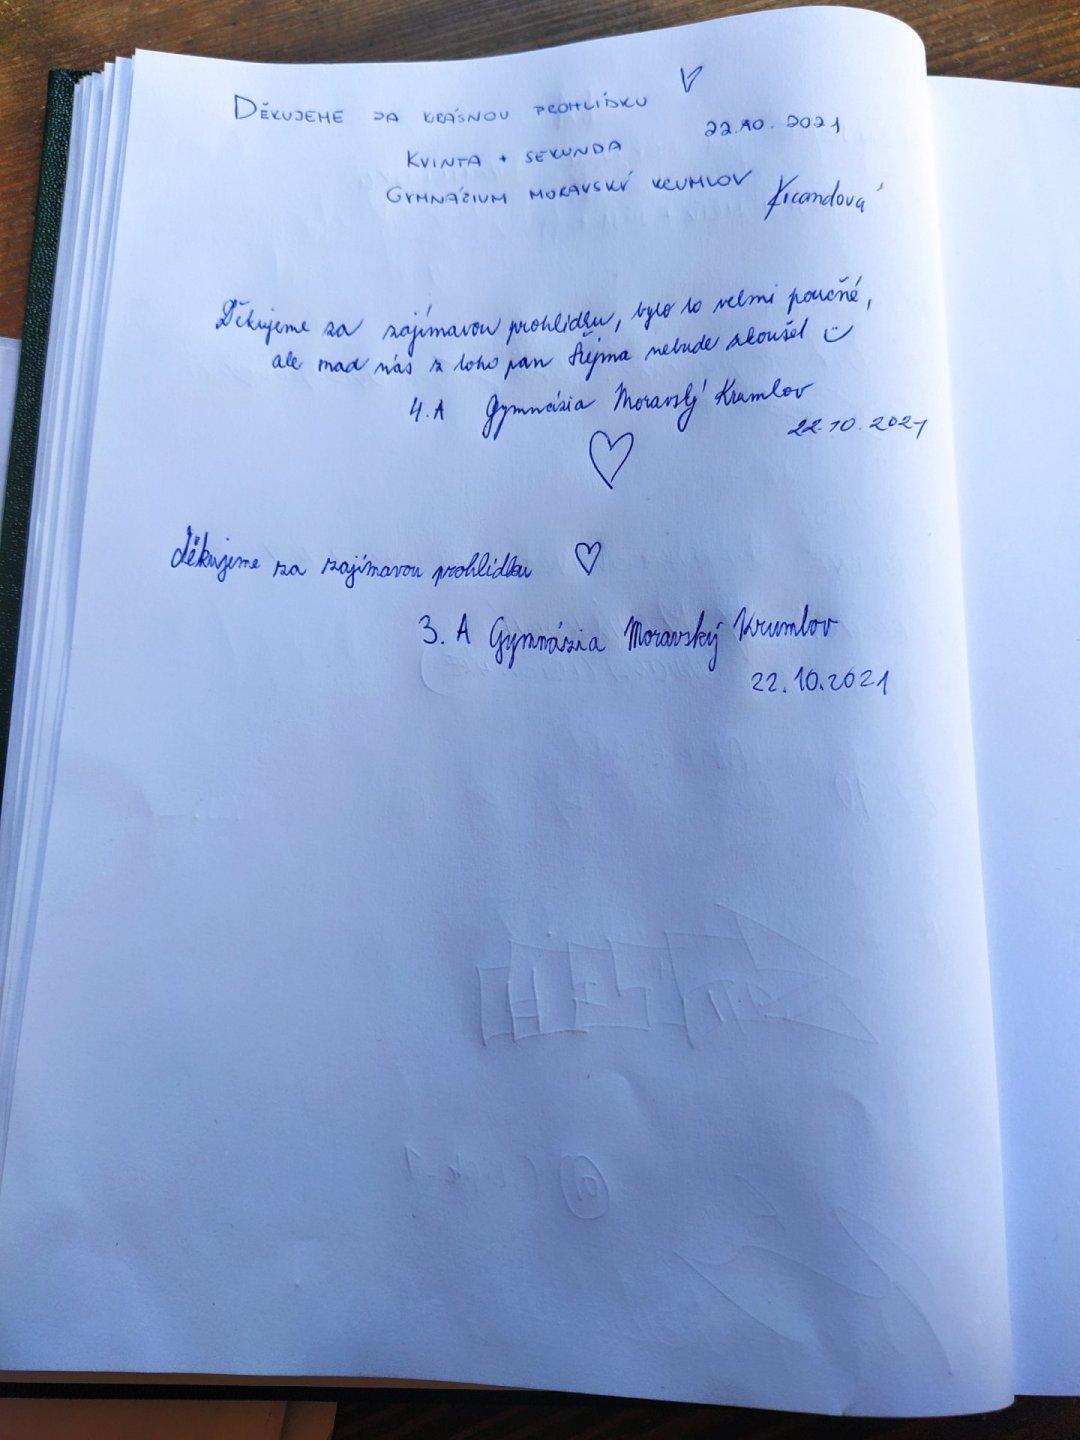 DĚKUJEME ZA KRÁSNOU PROHLÍDKU
22.10.2021
KVINTA + SEKUNDA
GYMNÁZIUM MORAVSKÝ KRUMLOV
Děkujeme za zajímavou prohlídku, bylo to velmi poučné,
ale snad nás z toho pan Šejma nebude zkoušet
4.A Gymnázia Moravský Krumlov
22.10.2021
Děkujeme za zajímavou prohlídku
3. A Gymnázia Moravský Krumlov
22.10.2021